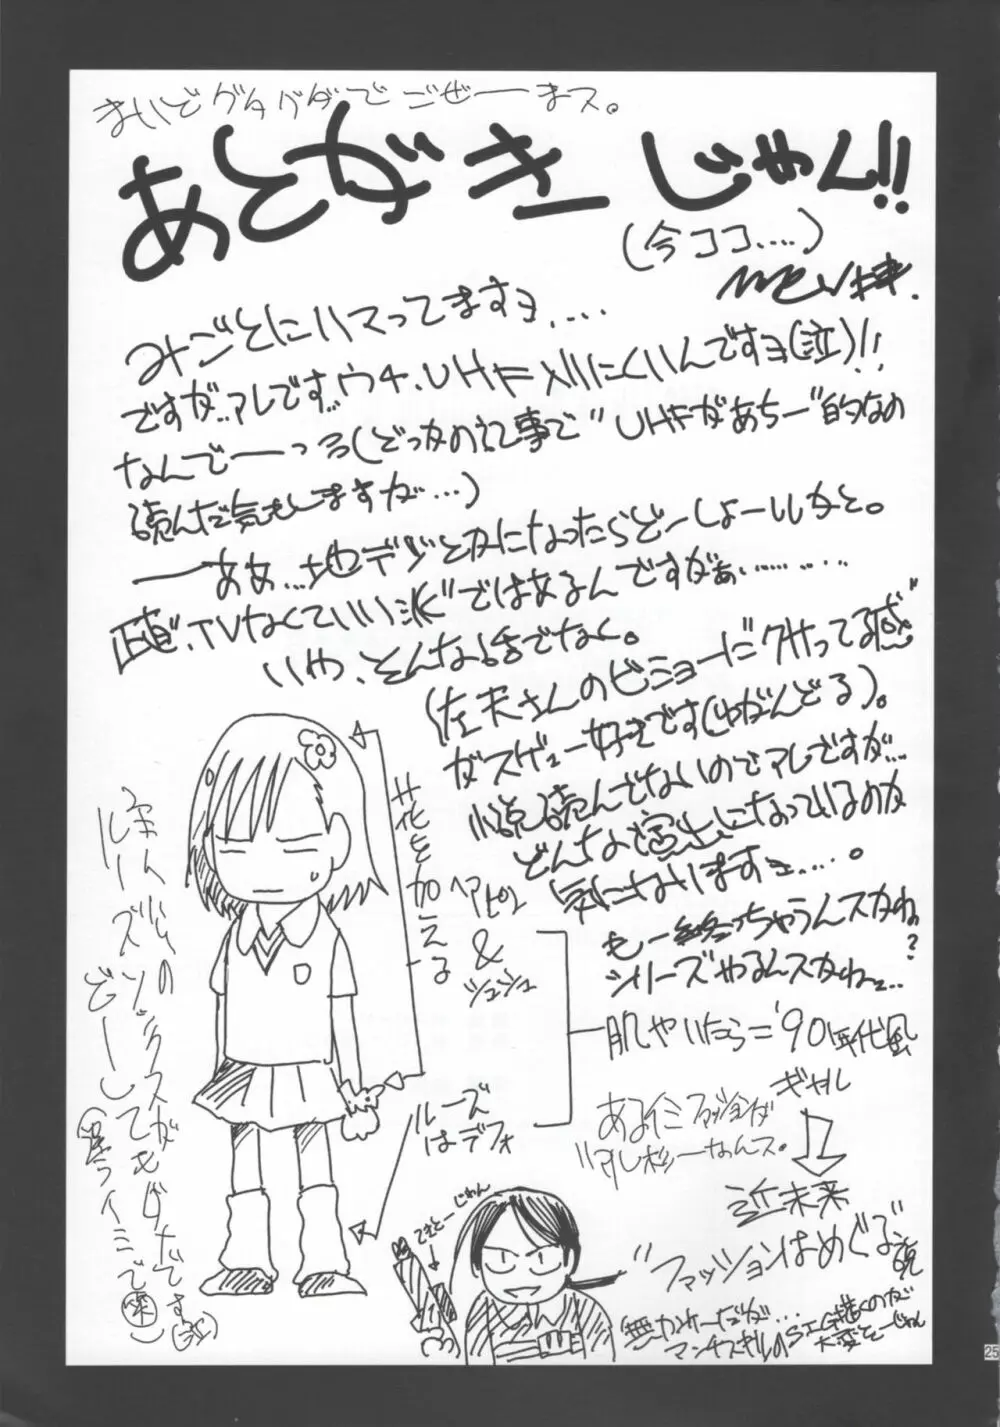 まいどグダグダでごぜーまス。
あとがきじゃん!!
(今ココ....)
みごとにハマってますヨ....
ですが..アレです..ウチ、UHF入りにくいんですヨ(泣)!!
なんでーっろ(どっかの記事で"UHFがあちー"的なの
読んだ気もしますが...)
ーああ...地デジとかになったらどーしょーいかと。
正直、TVなくていい派"ではあるんですがぁ........
いや、そんな話でなく。
(左天さんのビミョーに"クサってる感"
がスゲュー好きです(ゆがんどる)。
小説読んでないのでアレですが...
どんな演出になっているのか
気になりますヨ....。
も一終っちゃうんスかね?
シリーズやるんスかね..
花を加える
ヘアピン
&
シュシュ
ルーズ
はデフォ
肌やいたら='90年代風
ギャル
ある イミ ファッションが
ーなんス。
近未来
"ファッションはめぐる"説
個人的の
ルーズソックスが
どーしてもダメです(泣)
(違うイミで(笑))
てきとーじゃん
無かねーだが...
SIG描くのが
大変そーじゃん
25